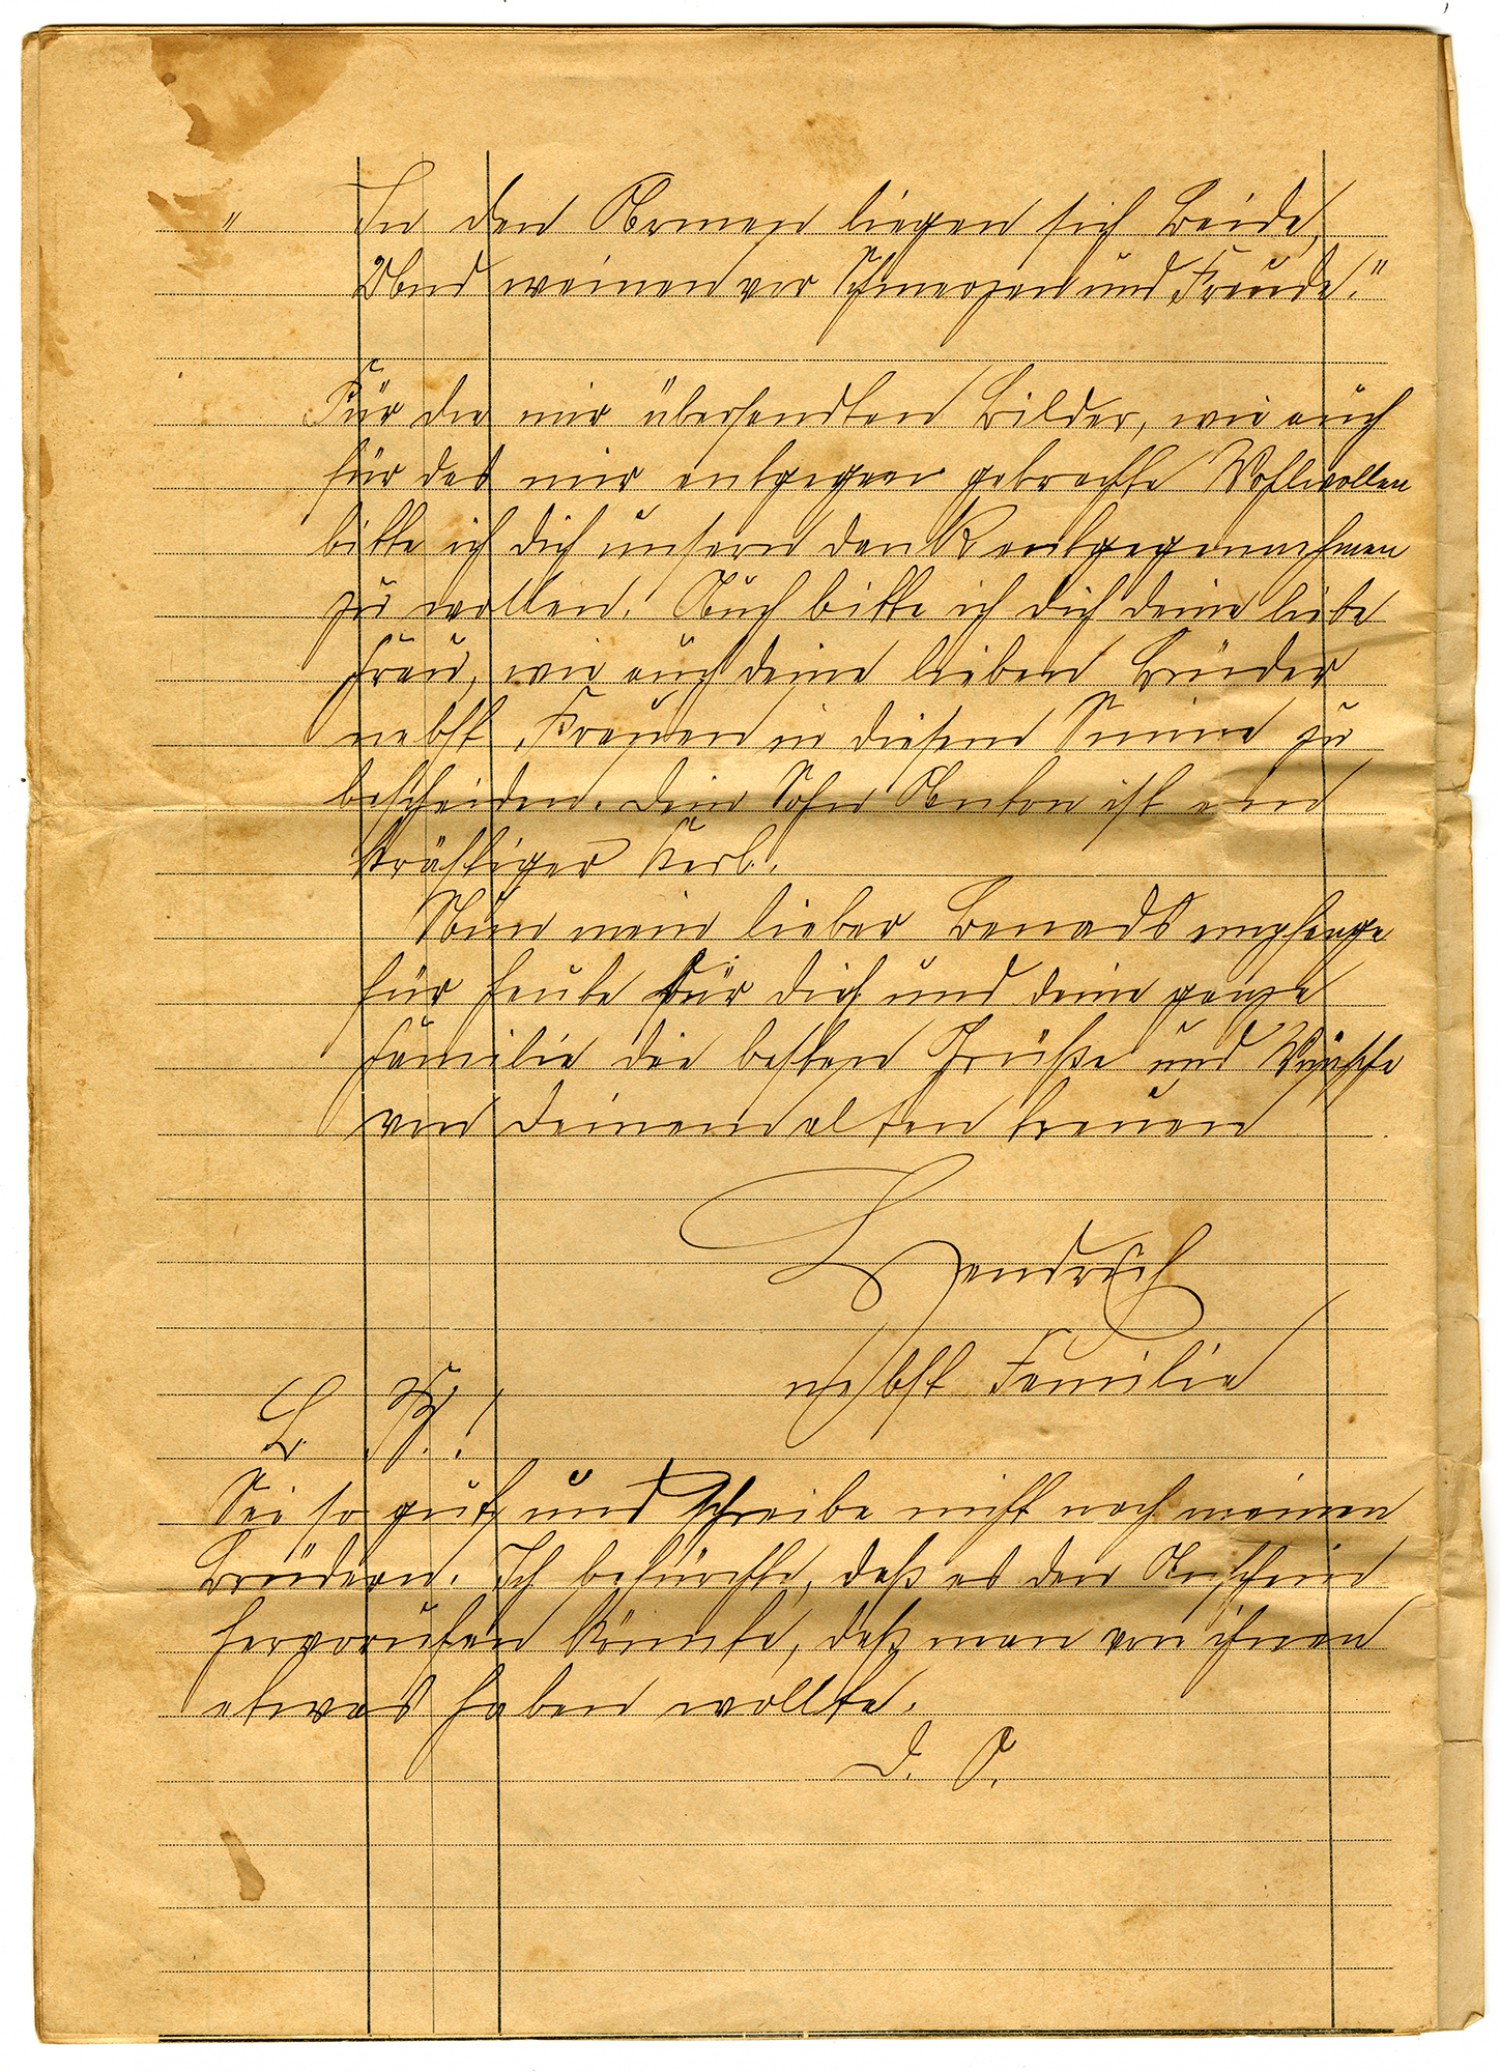 " In den Armen liegen sich Beide,
Und weinen vor Schmerzen und Freude."
Für die mir übersandten Bilder, wie auch
für das mir entgegen gebrachte Wohlwollen
bitte ich dich unsern Dank entgegennehmen
zu wollen. Auch bitte ich dich deine liebe
Frau, wie auch deine lieben Brüder
nebst Frauen in diesem Sinne zu
bescheiden. Dein Sohn Anton ist ein
kräftiger Kerl.
Nun mein lieber empfange
für heute für dich und deine ganze
Familie die besten Grüße und Wünsche
von deinem alten treuen
nebst Familie
L. B.!
Sei so gut und schreibe nicht nach meinen
Brüdern. Ich befürchte, daß es den Anschein
hervorrufen könnte, daß man von ihnen
etwas haben wollte.
D. O.